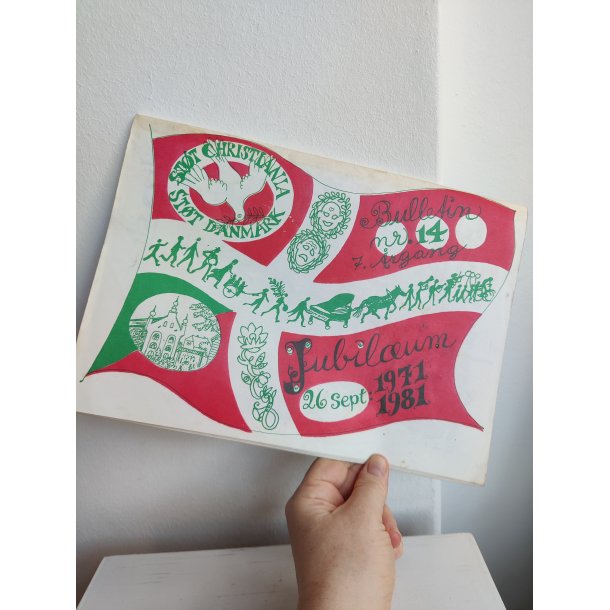 STØT CHRISTIANIA
STØT DANMARK
Bulletin
nr. 14
7. Årgang
Jubilæum
26 Sept: 1971
1981